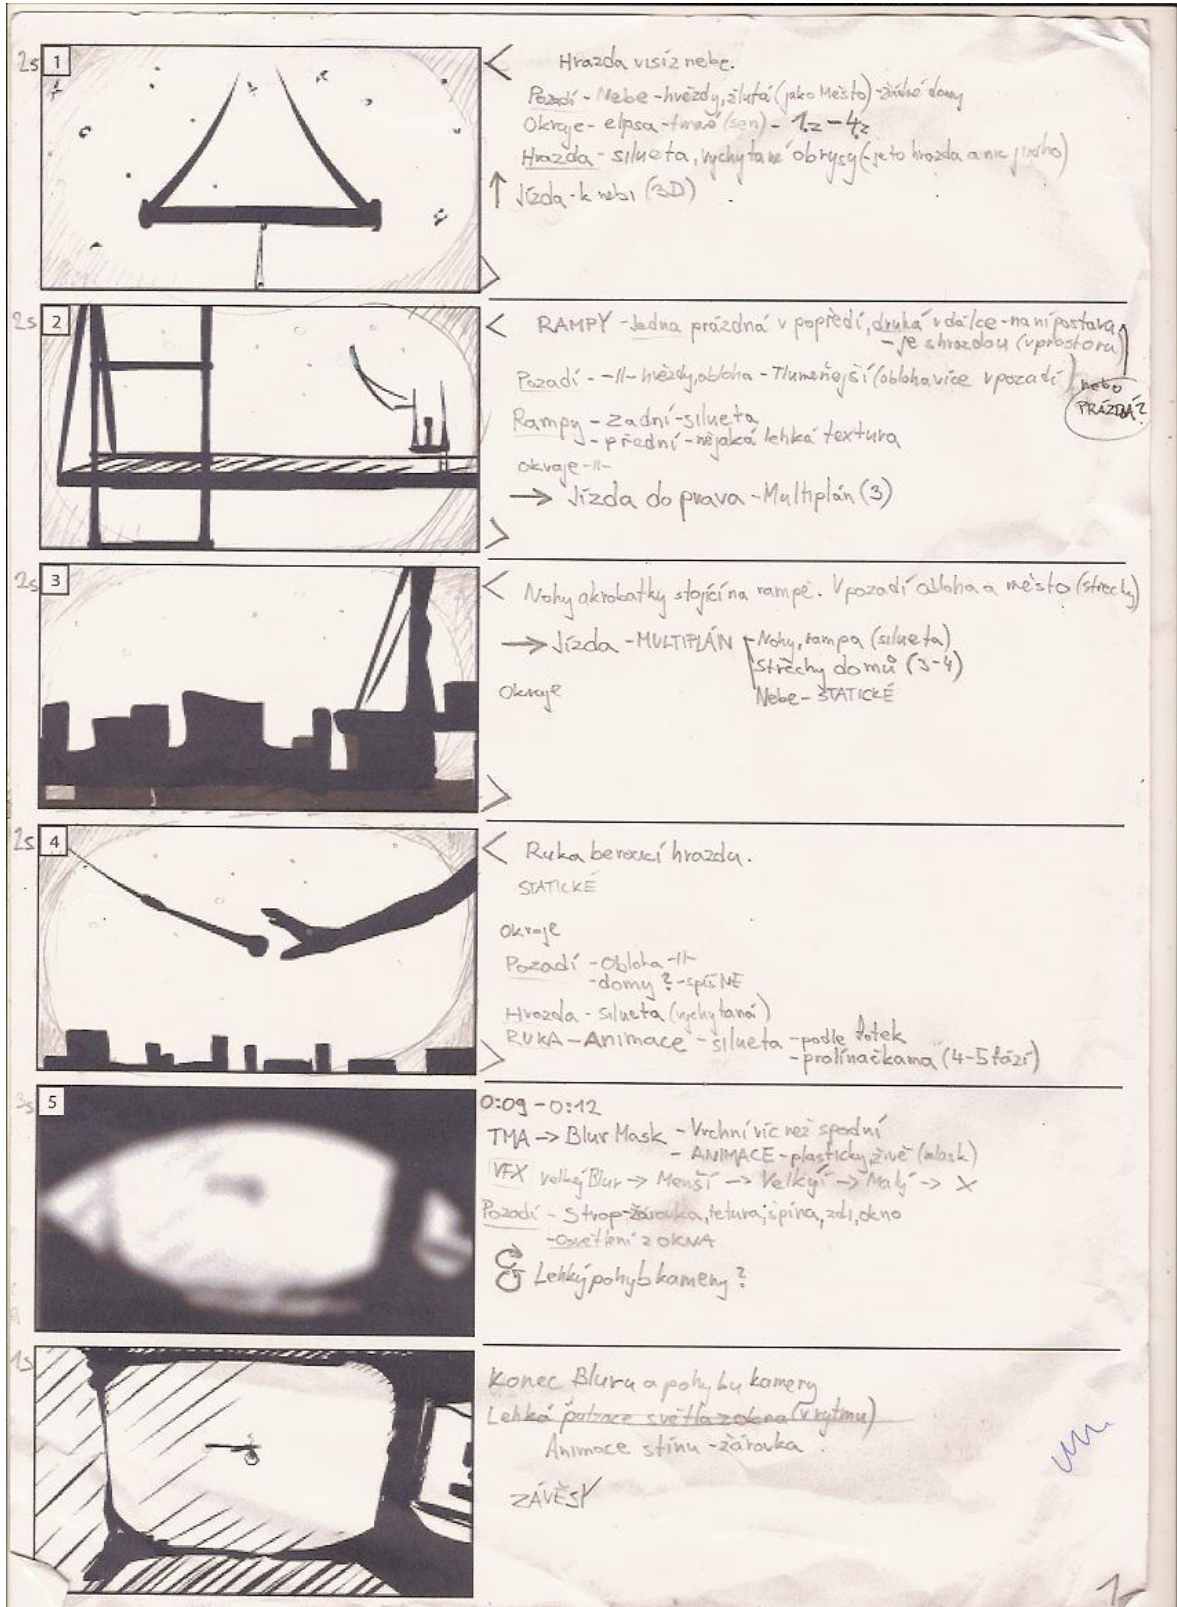 2s 1
Hrazda visí z nebe.
Pozadí - Nebe - hvězdy, žlutá (jako Město) - žádné domy
Okraje - elipsa - tmavé (sen) - 1.z - 4.z
Hrazda - silueta, vychytané obrysy (- je to hrazda a nic jiného)
↑ Jízda - k nebi (3D)
2s 2
RAMPY - Jedna prázdná v popředí, druhá v dálce - na ní postava
- je s hrazdou (v prostoru)
Pozadí - -||- hvězdy, obloha - Tlumenější (obloha více v pozadí)
nebo
PRÁZDNÁ?
Rampy - zadní - silueta
- přední - nějaká lehká textura
okraje -||-
→ Jízda do prava - Multiplán (3)
2s 3
Nohy akrobatky stojící na rampě. V pozadí obloha a město (střechy)
→ Jízda - MULTIPLÁN - Nohy, rampa (silueta)
Střechy domů (3-4)
Okraje
Nebe - STATICKÉ
2s 4
Ruka beroucí hrazdu.
STATICKÉ
Okraje
Pozadí - Obloha -||-
- domy? - spíš NE
Hrazda - silueta (vychytaná)
RUKA - Animace - silueta - podle fotek
- prolínačkama (4-5 fází)
3s 5
0:09 - 0:12
TMA → Blur Mask - Vrchní víc než spodní
- ANIMACE - plasticky, živě (mask)
VFX velký Blur → Menší → Velkýí → Malý → X
Pozadí - Strop - žárovka, tetura, špína, zdi, okno
- Osvětlení z OKNA
Lehký pohyb kamery?
1s
Konec Bluru a pohybu kamery
Lehká pulzace světla z okna (v rytmu)
Animace stínu - žárovka
ZÁVĚSY
1